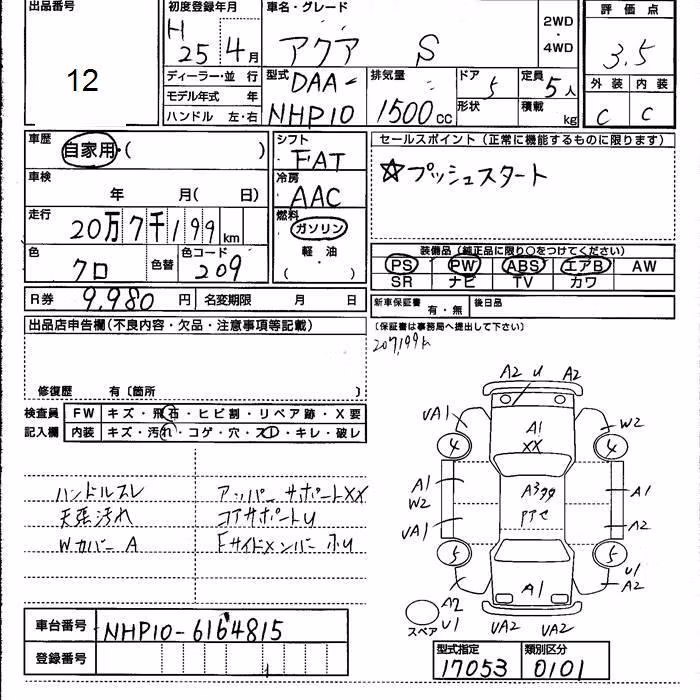 出品番号
12
初度登録年月
H 25 4月
車名・グレード
アクア S
2WD
・
4WD
評価点
3.5
外装 内装
C C
ディーラー・並 行
モデル年式 年
ハンドル 左・右
型式 DAA-
NHP10
排気量
1500cc
ドア 5
形状
定員 5人
積載 kg
車歴
自家用・( )
車検
年 月( 日)
走行
20万7千199km
色
クロ
色替
色コード
209
シフト
FAT
冷房
AAC
燃料
ガソリン
軽・油
( )
セールスポイント(正常に機能するものに限ります)
☆プッシュスタート
装備品(純正品に限り○をつけてください)
PS PW ABS エアB AW
SR ナビ TV カワ
R券 9,980 円 名変期限 月 日
新車保証書 有・無 後日品
(保証書は事務局へ提出して下さい)
207,199k
出品店申告欄(不良内容・欠品・注意事項等記載)
修復歴 有〔箇所 〕
検査員 FW キズ・飛石・ヒビ割・リペア跡・X要
記入欄 内装 キズ・汚れ・コゲ・穴・スレ・キレ・破レ
ハンドルスレ
天張汚れ
WカバーA
アッパーサポートXX
コアサポートU
FサイドメンバーホU
A2 U A2
UA1 W2
4 A1 4
XX
A1 A1
W2 A3
UA1 A2
5 5
U1
A2 A1 A2
U1
スペア UA2 UA2
車台番号 NHP10-6164815
登録番号
型式指定 類別区分
17053 0101